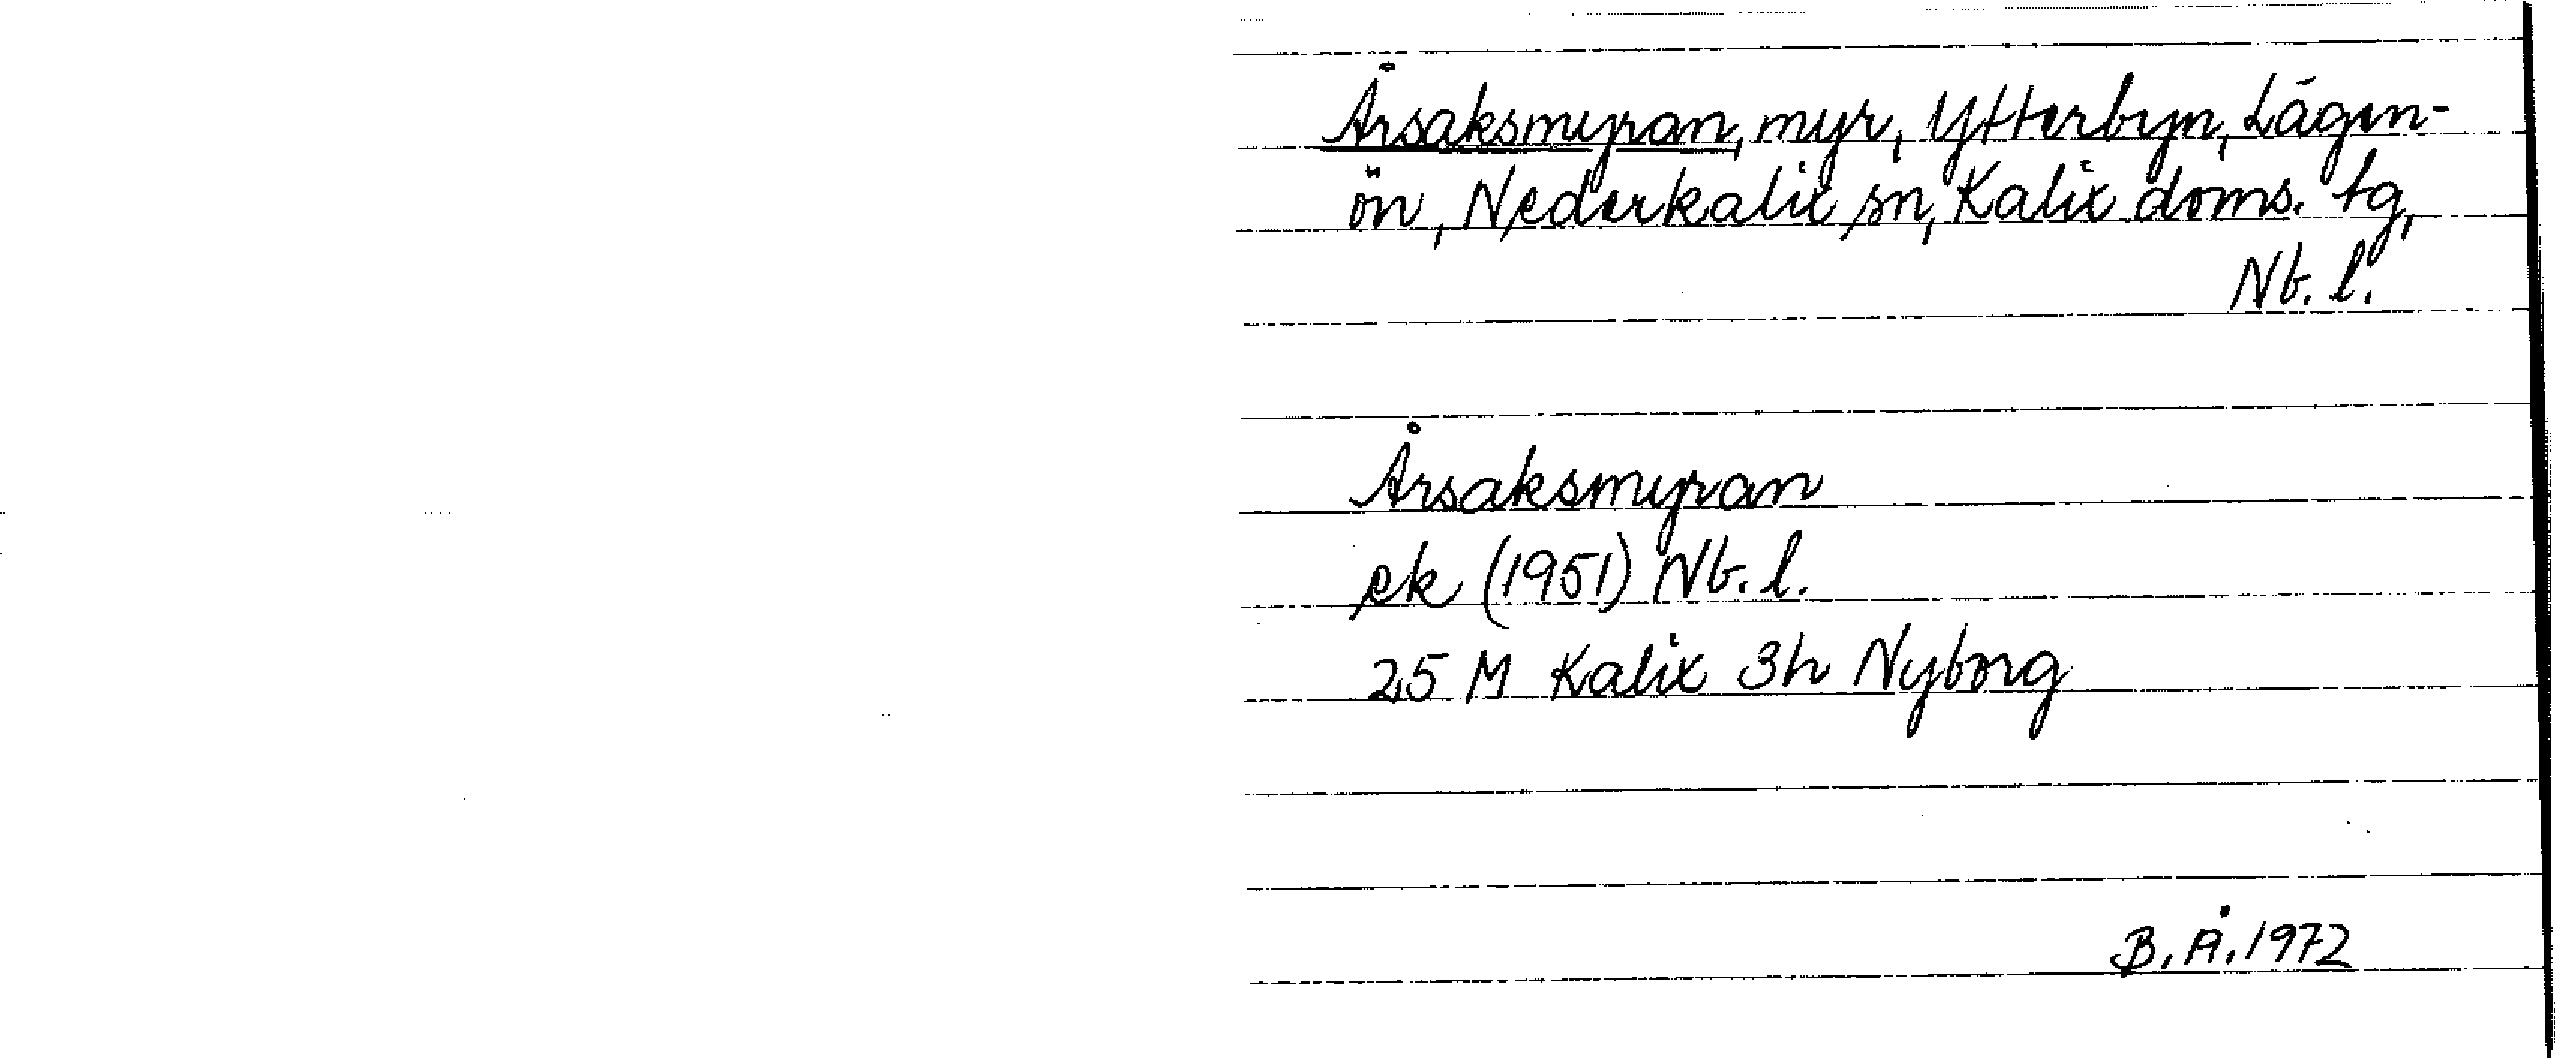 Årsaksmyran, myr, Ytterbyn, Lågen-
ön, Nederkalix sn, Kalix doms. tg,
Nb. l.
Årsaksmyran
ek (1951) Nb. l.
25 M Kalix 3h Nyborg
B. Å. 1972